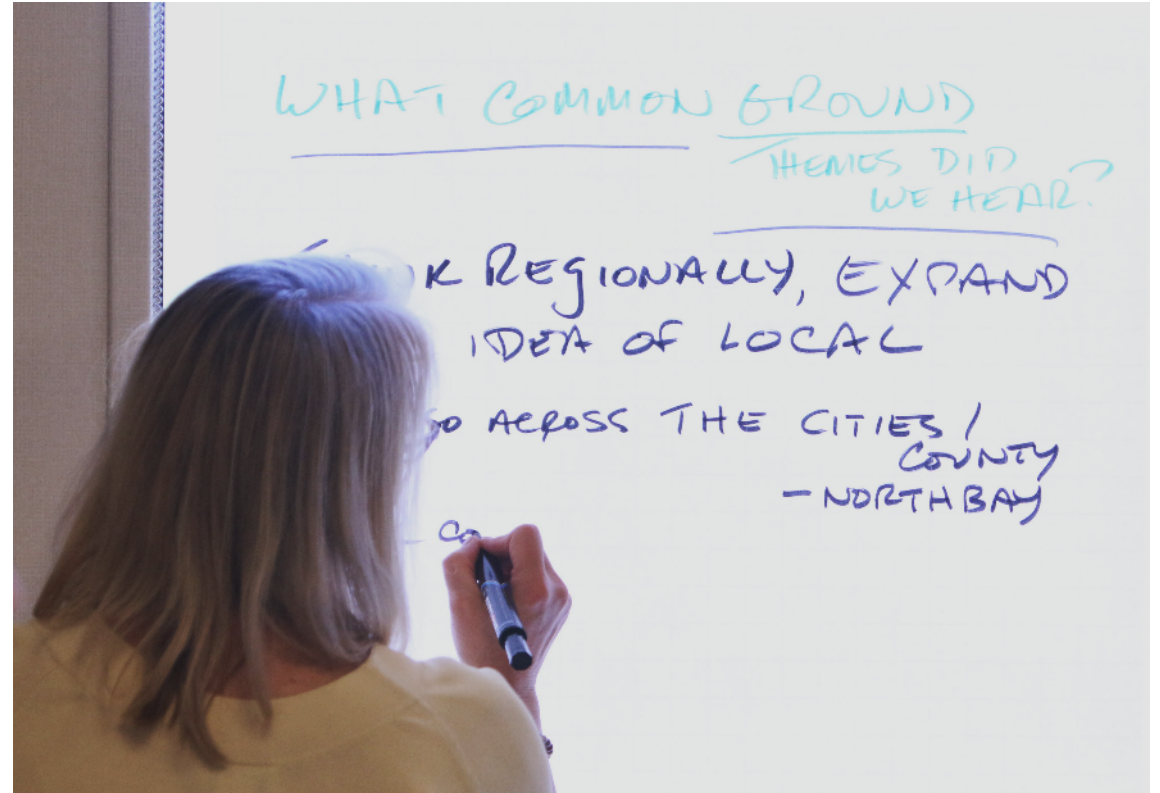 WHAT COMMON GROUND
THEMES DID
WE HEAR?
REGIONALLY, EXPAND
IDEA OF LOCAL
ACROSS THE CITIES /
COUNTY
- NORTHBAY